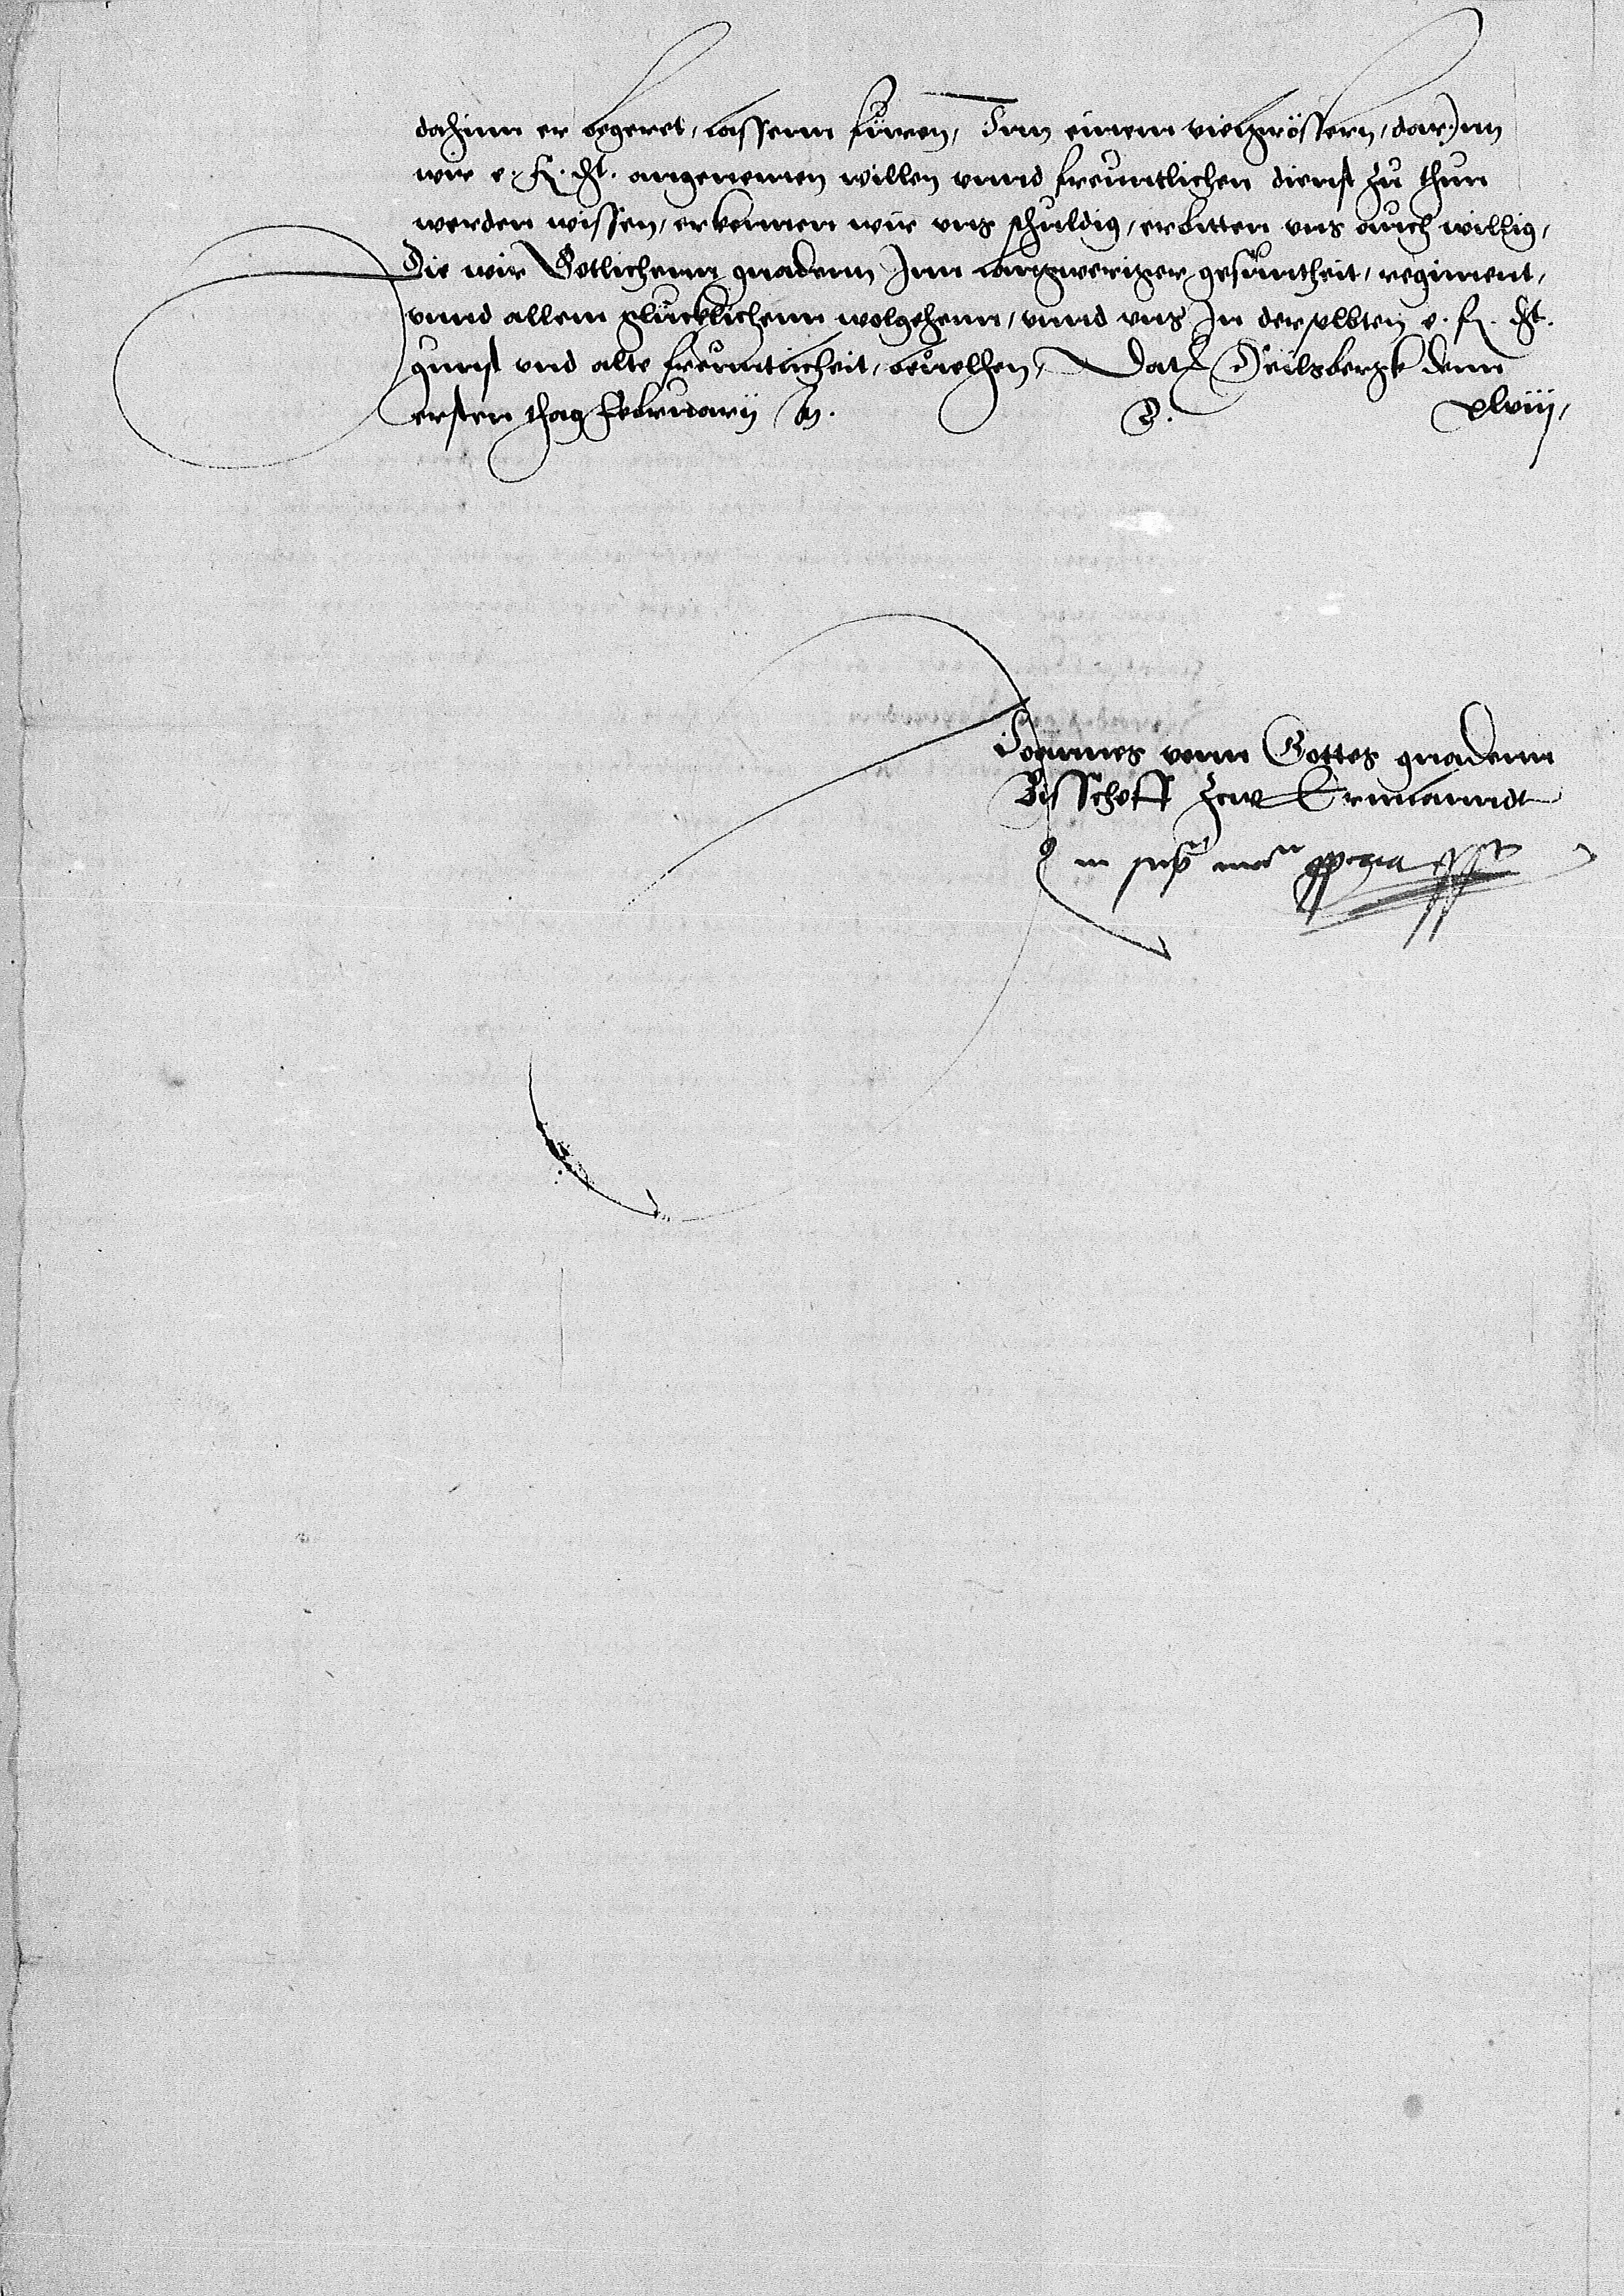 dohinn er begeret, lassenn füren, Inn einem vielgrössern, dar Inn
wir e. f. Ht. angenemen willen vnnd freuntlichen dienst zu thun
werden wissen, erkennen wir vns schuldig, erbitten vns auch willig,
Die wir Gotlichenn gnadenn Inn langweriger gesuntheit, regiment,
vnnd allem glucklichenn wolgehenn, vnnd vns In derselbten e. f. Ht.
gunst vnd alte freuntlicheit, beuelhen, Dat Heilsbergk denn
ersten thag Februarij M. D. xlviij,
Joannes vonn Gottes gnadenn
Bisschoff zcw Ermelanndt